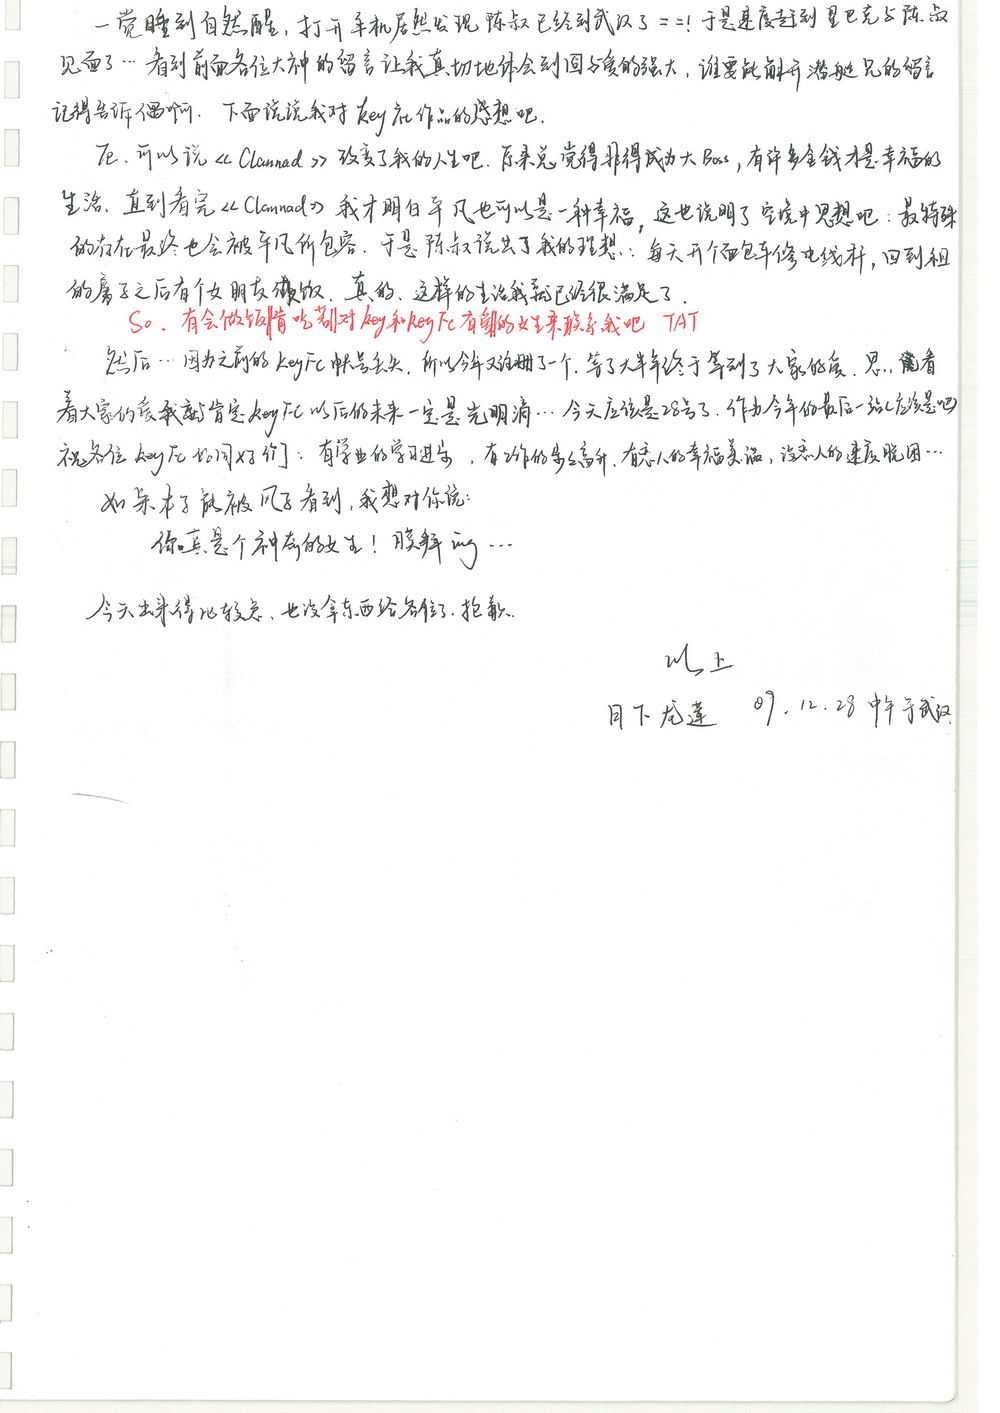 一觉睡到自然醒，打开手机居然发现陈叔已经到武汉了 = =! 于是速度赶到星巴克与陈叔
见面了… 看到前面各位大神的留言让我真切地体会到回与爱的强大，谁要能解开潜艇兄的留言
记得告诉偶啊. 下面说说我对key社作品的感想吧.
可以说《Clannad》改变了我的人生吧. 原来总觉得非得成为大Boss，有许多金钱才是幸福的
生活. 直到看完《Clannad》我才明白平凡也可以是一种幸福，这也说明了空境中思想吧：最特殊
的存在最终也会被平凡所包容. 于是陈叔说出了我的理想：每天开个面包车修电线杆，回到租
的房子之后有个女朋友做饭. 真的、这样的生活我就已经很满足了.
So. 有会做饭肯吃苦对key和keyFc有爱的女生来联系我吧 TAT
然后… 因为之前的KeyFc帐号丢失. 所以今年又注册了一个. 等了大半年终于等到了大家的爱. 恩.. 看
着大家的爱我肯定KeyFC以后的未来一定是光明滴… 今天应该是28号了. 作为今年的最后一站(应该是吧)
祝各位KeyFc的同好们：有学业的学习进步，有工作的步步高升. 有恋人的幸福美满，没恋人的速度脱团…
如果本子能被风子看到，我想对你说：
你真是个神奇的女生！膜拜ing…
今天出来得比较急、也没拿东西给各位了. 抱歉.
以上
月下龙莲 09.12.28 中午于武汉